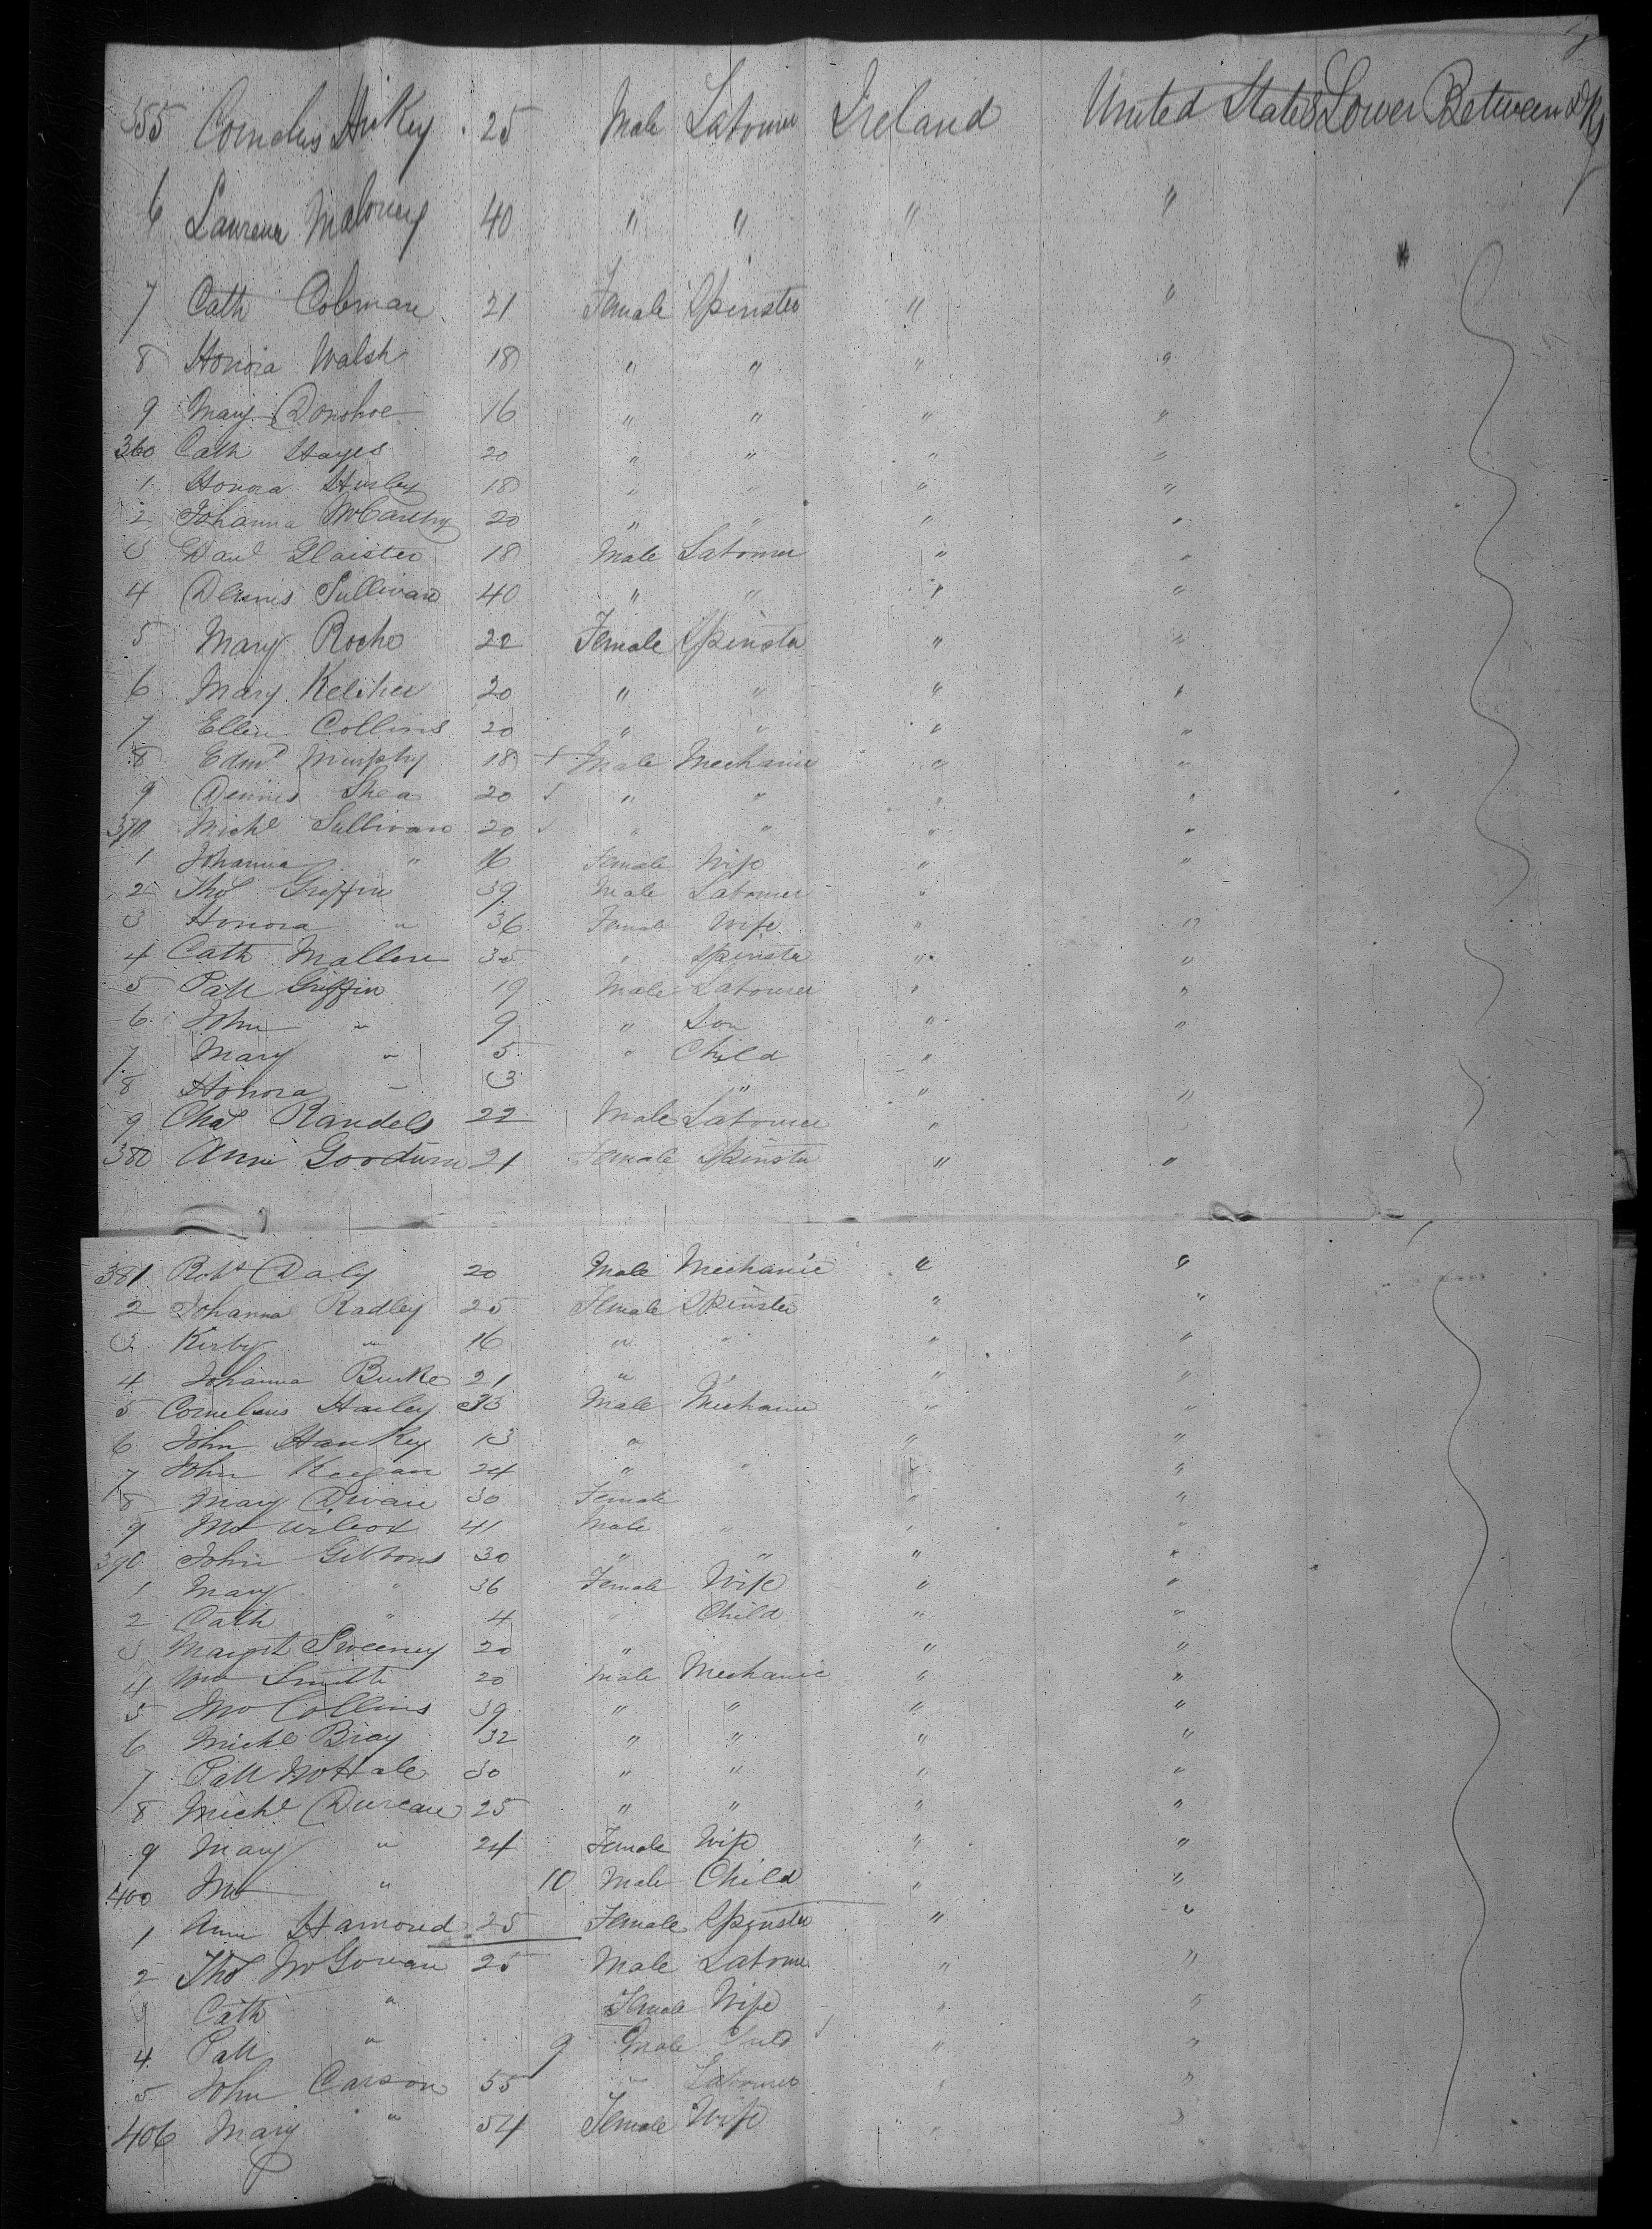 355 Cornelius Hickey 25 Male Labourer Ireland United States Lower Between Dks
6 Laurence Maloney 40 " " " "
7 Cath Coleman 21 Female Spinster " "
8 Honora Walsh 18 " " " "
9 Mary Donohoe 16 " " " "
360 Cath Hayes 20 " " " "
1 Honora Hurley 18 " " " "
2 Johanna McCarthy 20 " " " "
3 Danl Glaister 18 Male Labourer " "
4 Dennis Sullivan 40 " " " "
5 Mary Roche 22 Female Spinster " "
6 Mary Keliher 20 " " " "
7 Ellen Collins 20 " " " "
8 Edmd Murphy 18 Male Mechanic " "
9 Dennis Shea 20 " " " "
370 Michl Sullivan 20 " " " "
1 Johanna " 16 Female Wife " "
2 Thos Griffin 39 Male Labourer "
3 Honora " 36 Female Wife " "
4 Cath Mallon 35 " Spinster " "
5 Patt Griffin 19 Male Labourer " "
6 John " 9 " Son " "
7 Mary " 5 " Child "
8 Honora " 3 " " "
9 Chas Randels 22 Male Labourer "
380 Ann Goodwin 21 Female Spinster " "
381 Robt Daly 20 Male Mechanic " "
2 Johanna Radley 25 Female Spinster " "
3 Kirby " 16 " " " "
4 Johanna Burke 21 " " "
5 Cornelius Harley 33 Male Mechanic " "
6 John Hankey 13 " " "
7 John Keegan 24 " " " "
8 Mary Dwan 30 Female " "
9 Mr Wilcox 41 Male " " "
390 John Gibbons 30 " " " "
1 Mary " 36 Female Wife " "
2 Cath " 4 " Child " "
3 Margrt Sweeney 20 " " "
4 Wm Smith 20 Male Mechanic " "
5 Jno Collins 39 " " " "
6 Michl Bray 32 " " " "
7 Patt McHale 30 " " " "
8 Michl Duncan 25 " " " "
9 Mary " 24 Female Wife " "
400 Jno " 10 Male Child " "
1 Ann Hamond 25 Female Spinster " "
2 Thos McGowan 25 Male Labourer " "
Cath " Female Wife " "
4 Patt " 9 Male Child " "
5 John Carson 55 " Labourer " "
406 Mary " 54 Female Wife "